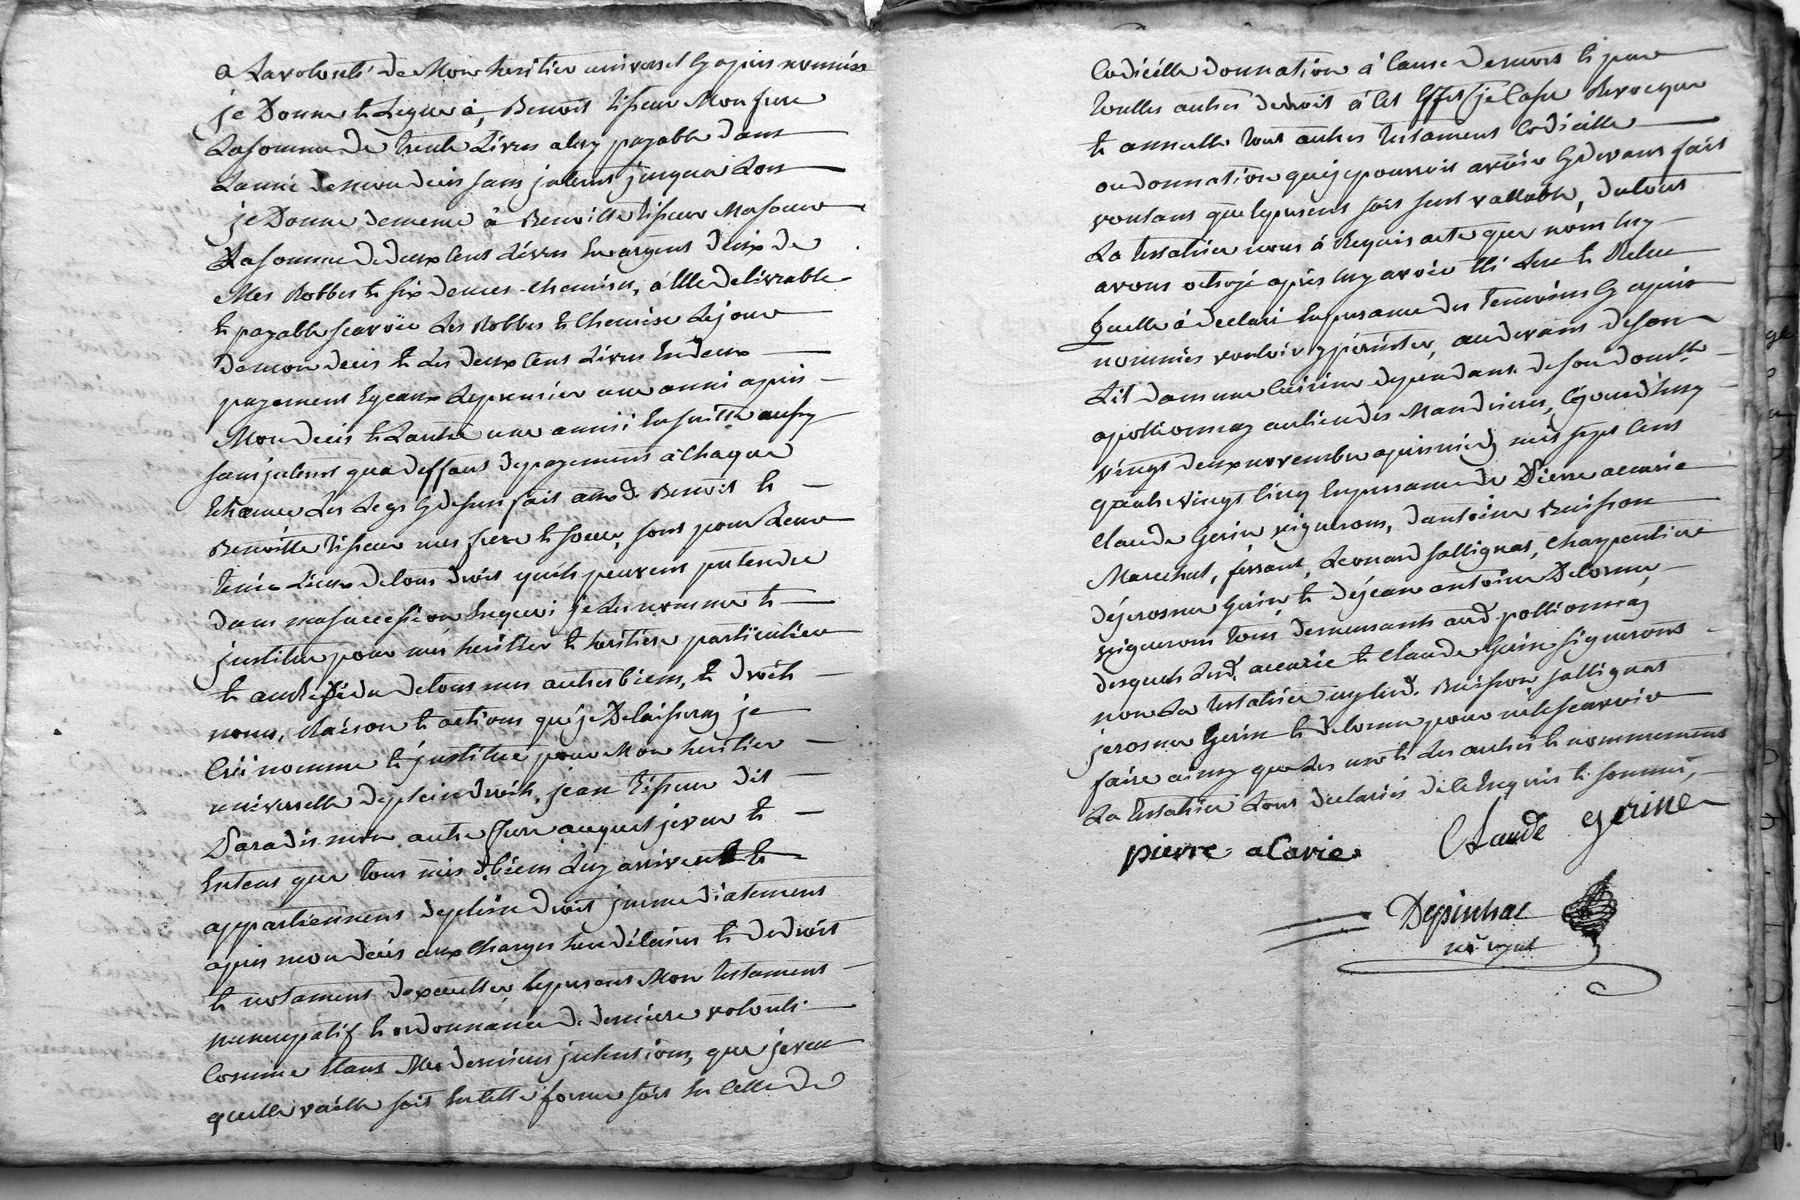 a La volonté de Mon heritier universel Cy apres nommée
je Donne et Legue à, Benoit tisseur Mon frere
La somme de trente Livres a luy payable dans
L'année de mon deces sans interest jusqu'a Lors
je Donne de meme à Benoitte tisseur Ma soeur
La somme de deux Cent Livres En argent deux de
Mes Robbes et six de mes chemises, à Elle delivrable
et payable scavoir Les Robbes et Chemise Le jour
de mon deces et Les deux Cent Livres En deux
payement Egeaux Le premier une année apres
Mon deces et L'autre une année Ensuitte aussy
sans interest qu'a deffaut de payement à Chaque
Echeance Les Legs Cy dessus fait aux d. Benoit et
Benoitte tisseur mes frere et soeur, sont pour Leur
tenir Lieu de tous droit qu'ils peuvent pretendre
dans ma succession En quoi je Les nomme et
institue pour mes heritier et heritiere particuliere
et au Residu de tous mes autres biens, et droits
noms, Raison et actions que je Delaisseray je
Créé nomme et institue pour Mon heritier
universelle de plein droits, jean tisseur dit
Paradis mon autre frere auquel je veux et
Entens que tous mes d. biens Luy arrivent et
appartiennent de plein droit immediatement
apres mon deces aux Charges heredítaires et de droit
et notament d'executter Le present Mon testament
nuncupatif et ordonnance de derniere volonté
Comme Etant Mes dernieres intentions, que je veux
qu'elle vaille soit En telle forme soit En Celle de
Codicille donnation à Cause de mort et par
touttes autres de droit à Cet Effet je Casse Revoque
et annulle tous autres testament Codicille
ou donnation que je pourrois avoir Cy devant fait
voulant que Le present soit seul vallable, du tout
La testatrice nous à Requis acte que nous luy
avons octroyé apres luy avoir Eté Lue et Relue
qu'elle à declaré En presence des temoins Cy apres
nommés vouloir y persister, au devant de son
Lit dans une Cuisine dependant de son domille
a pollionnay au lieu des Mandrieres, Cejourd'huy
vingt deux novembre apres midy mil sept Cent
quatre vingt Cinq En presence de Pierre accarie
Claude Gerin vignerons, d'antoine Buisson
Marechal, ferrant, Leonard sallignat, Charpentier
de jerosme Gerin, et de jean antoine Delorme,
vignerons tous demeurants aud. pollionnay
desquels Led. accarie et Claude Gerin signerons
non La testatrice ny Led. Buisson sallignat
jerosme Gerin et delorme pour ne le scavoir
faire ainsy que Les uns et Les autres et nommement
La testatrice L'ont declarés de Ce Enquis et sommé,
pierre acarie Claude gerine
Depinhac
nore royal